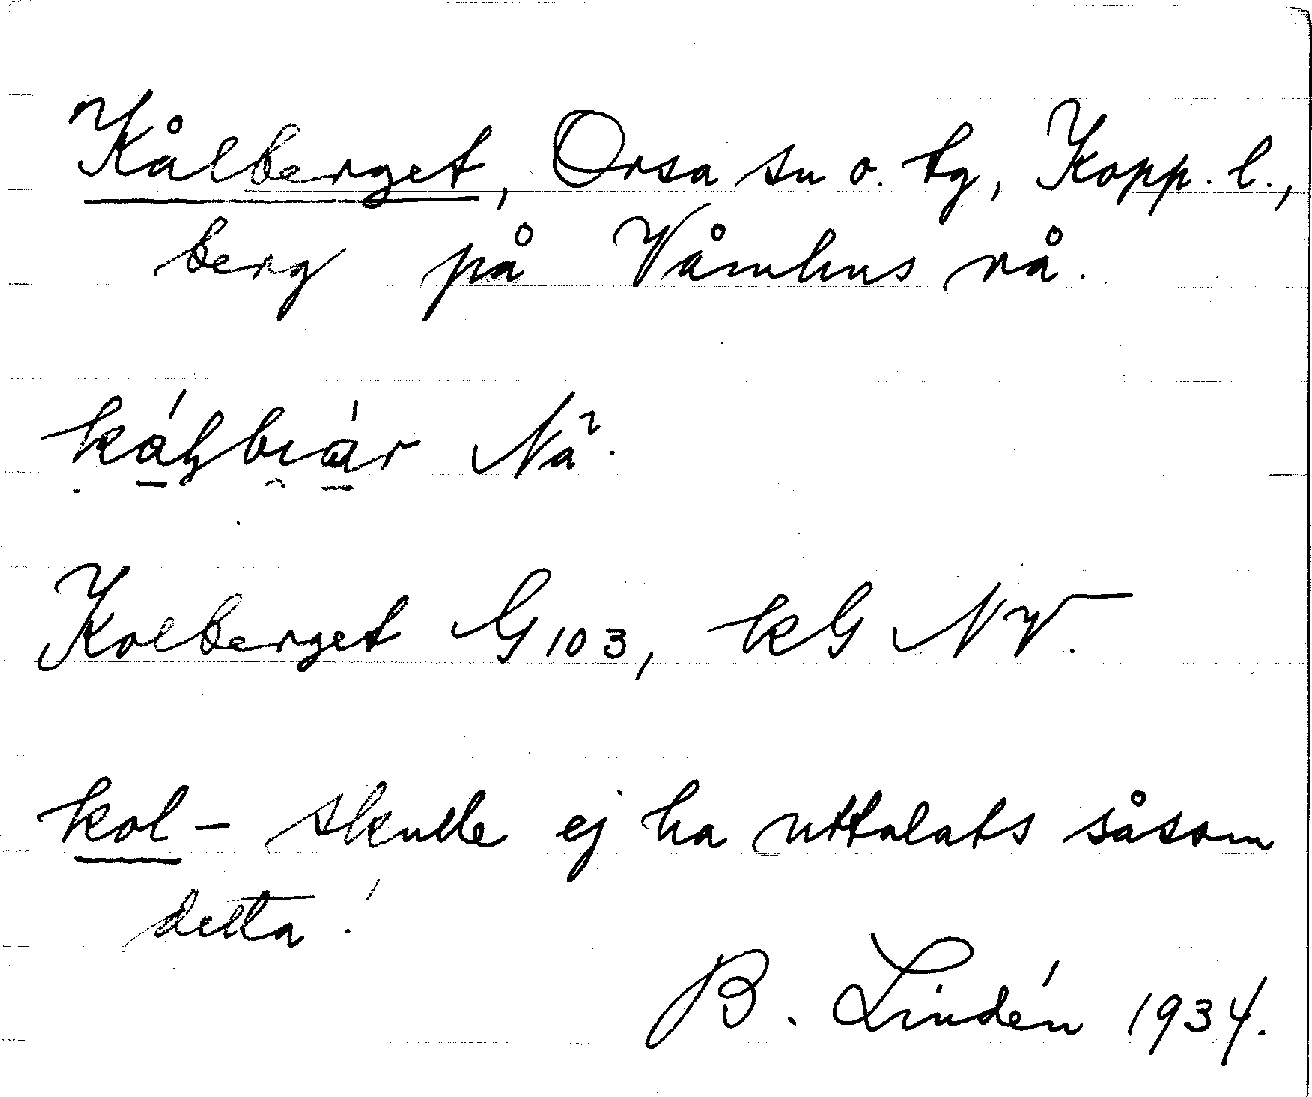 Kålberget, Orsa sn o. tg, Kopp. l.,
berg på Våmhus rå.

Kolberget G103, kG NV.
kol- skulle ej ha uttalats såsom
detta!
B. Lindén 1934.